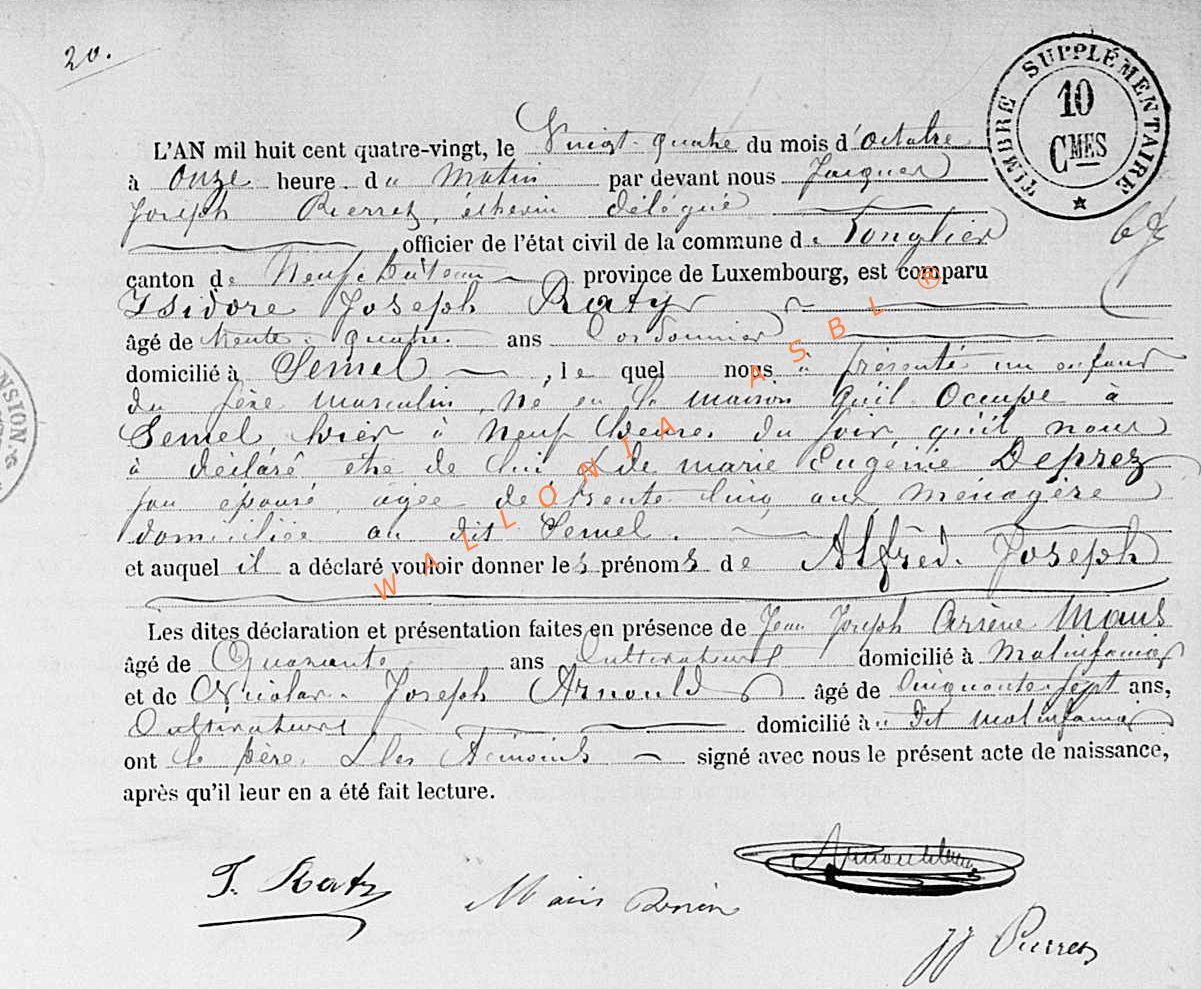 20.
TIMBRE SUPPLÉMENTAIRE
10
CMES
L'AN mil huit cent quatre-vingt, le Vingt-quatre du mois d'octobre
à onze heure du Matin par devant nous Jacques
Joseph Pierret, échevin délégué
, officier de l'état civil de la commune de Longlier
canton de Neufchâteau province de Luxembourg, est comparu
Isidore Joseph Raty
âgé de trente-quatre ans Cordonnier
domicilié à Semel, le quel nous à présenté un enfant
du sexe masculin, né en la maison qu'il occupe à
Semel hier à neuf heures du soir, qu'il nous
à déclaré être de lui & de marie Eugénie Deprez
son épouse agée de trente cinq ans ménagère
domiciliée au dit Semel.
et auquel il a déclaré vouloir donner les prénoms de Alfred Joseph
Les dites déclaration et présentation faites en présence de Jean Joseph Arsène Maus
âgé de Quarante ans Cultivateurs domicilié à Molinfaing
et de Nicolas Joseph Arnould âgé de Cinquante-sept ans,
Cultivateurs domicilié au dit Molinfaing
ont le père & les témoins signé avec nous le présent acte de naissance,
après qu'il leur en a été fait lecture.
WALLONIA ASBL ®
NSION.
J. Raty
JJ Pierret